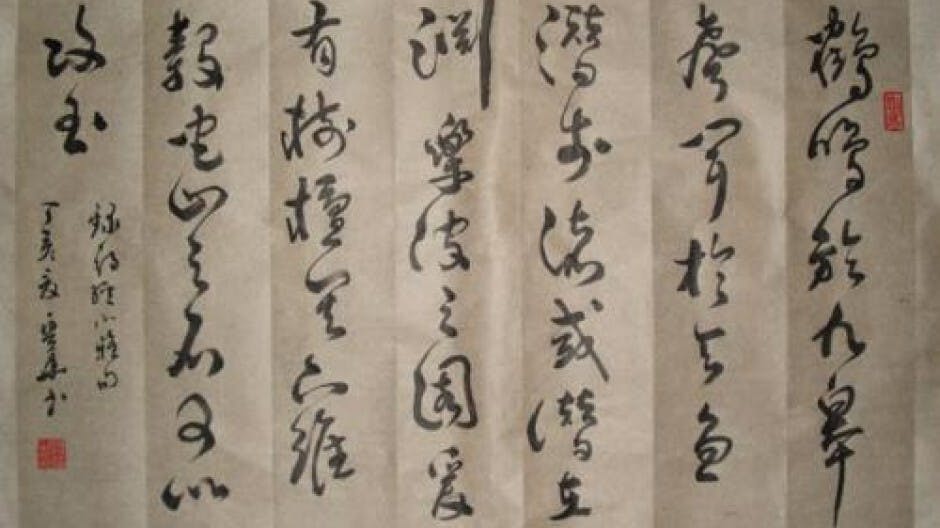 鶴鳴於九皋
聲聞於天魚
潛渚或潛在
淵樂彼之園爰
有樹檀其下維
榖它山之石可以
攻玉
錄詩經小雅句
丁亥夏書